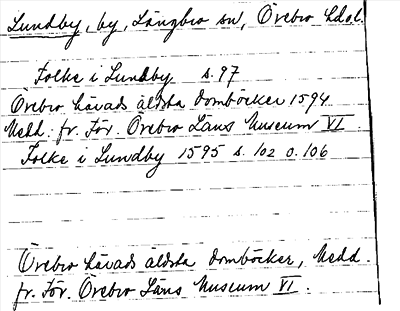 Lundby, by, Längbro sn, Örebro hd o.l.
Folke i Lundby s. 97
Örebro härads äldsta domböcker 1594.
Medd. fr. För. Örebro Läns Museum VI.
Folke i Lundby 1595 s. 102 o. 106
Örebro härads äldsta domböcker, Medd.
fr. För. Örebro Läns Museum VI.